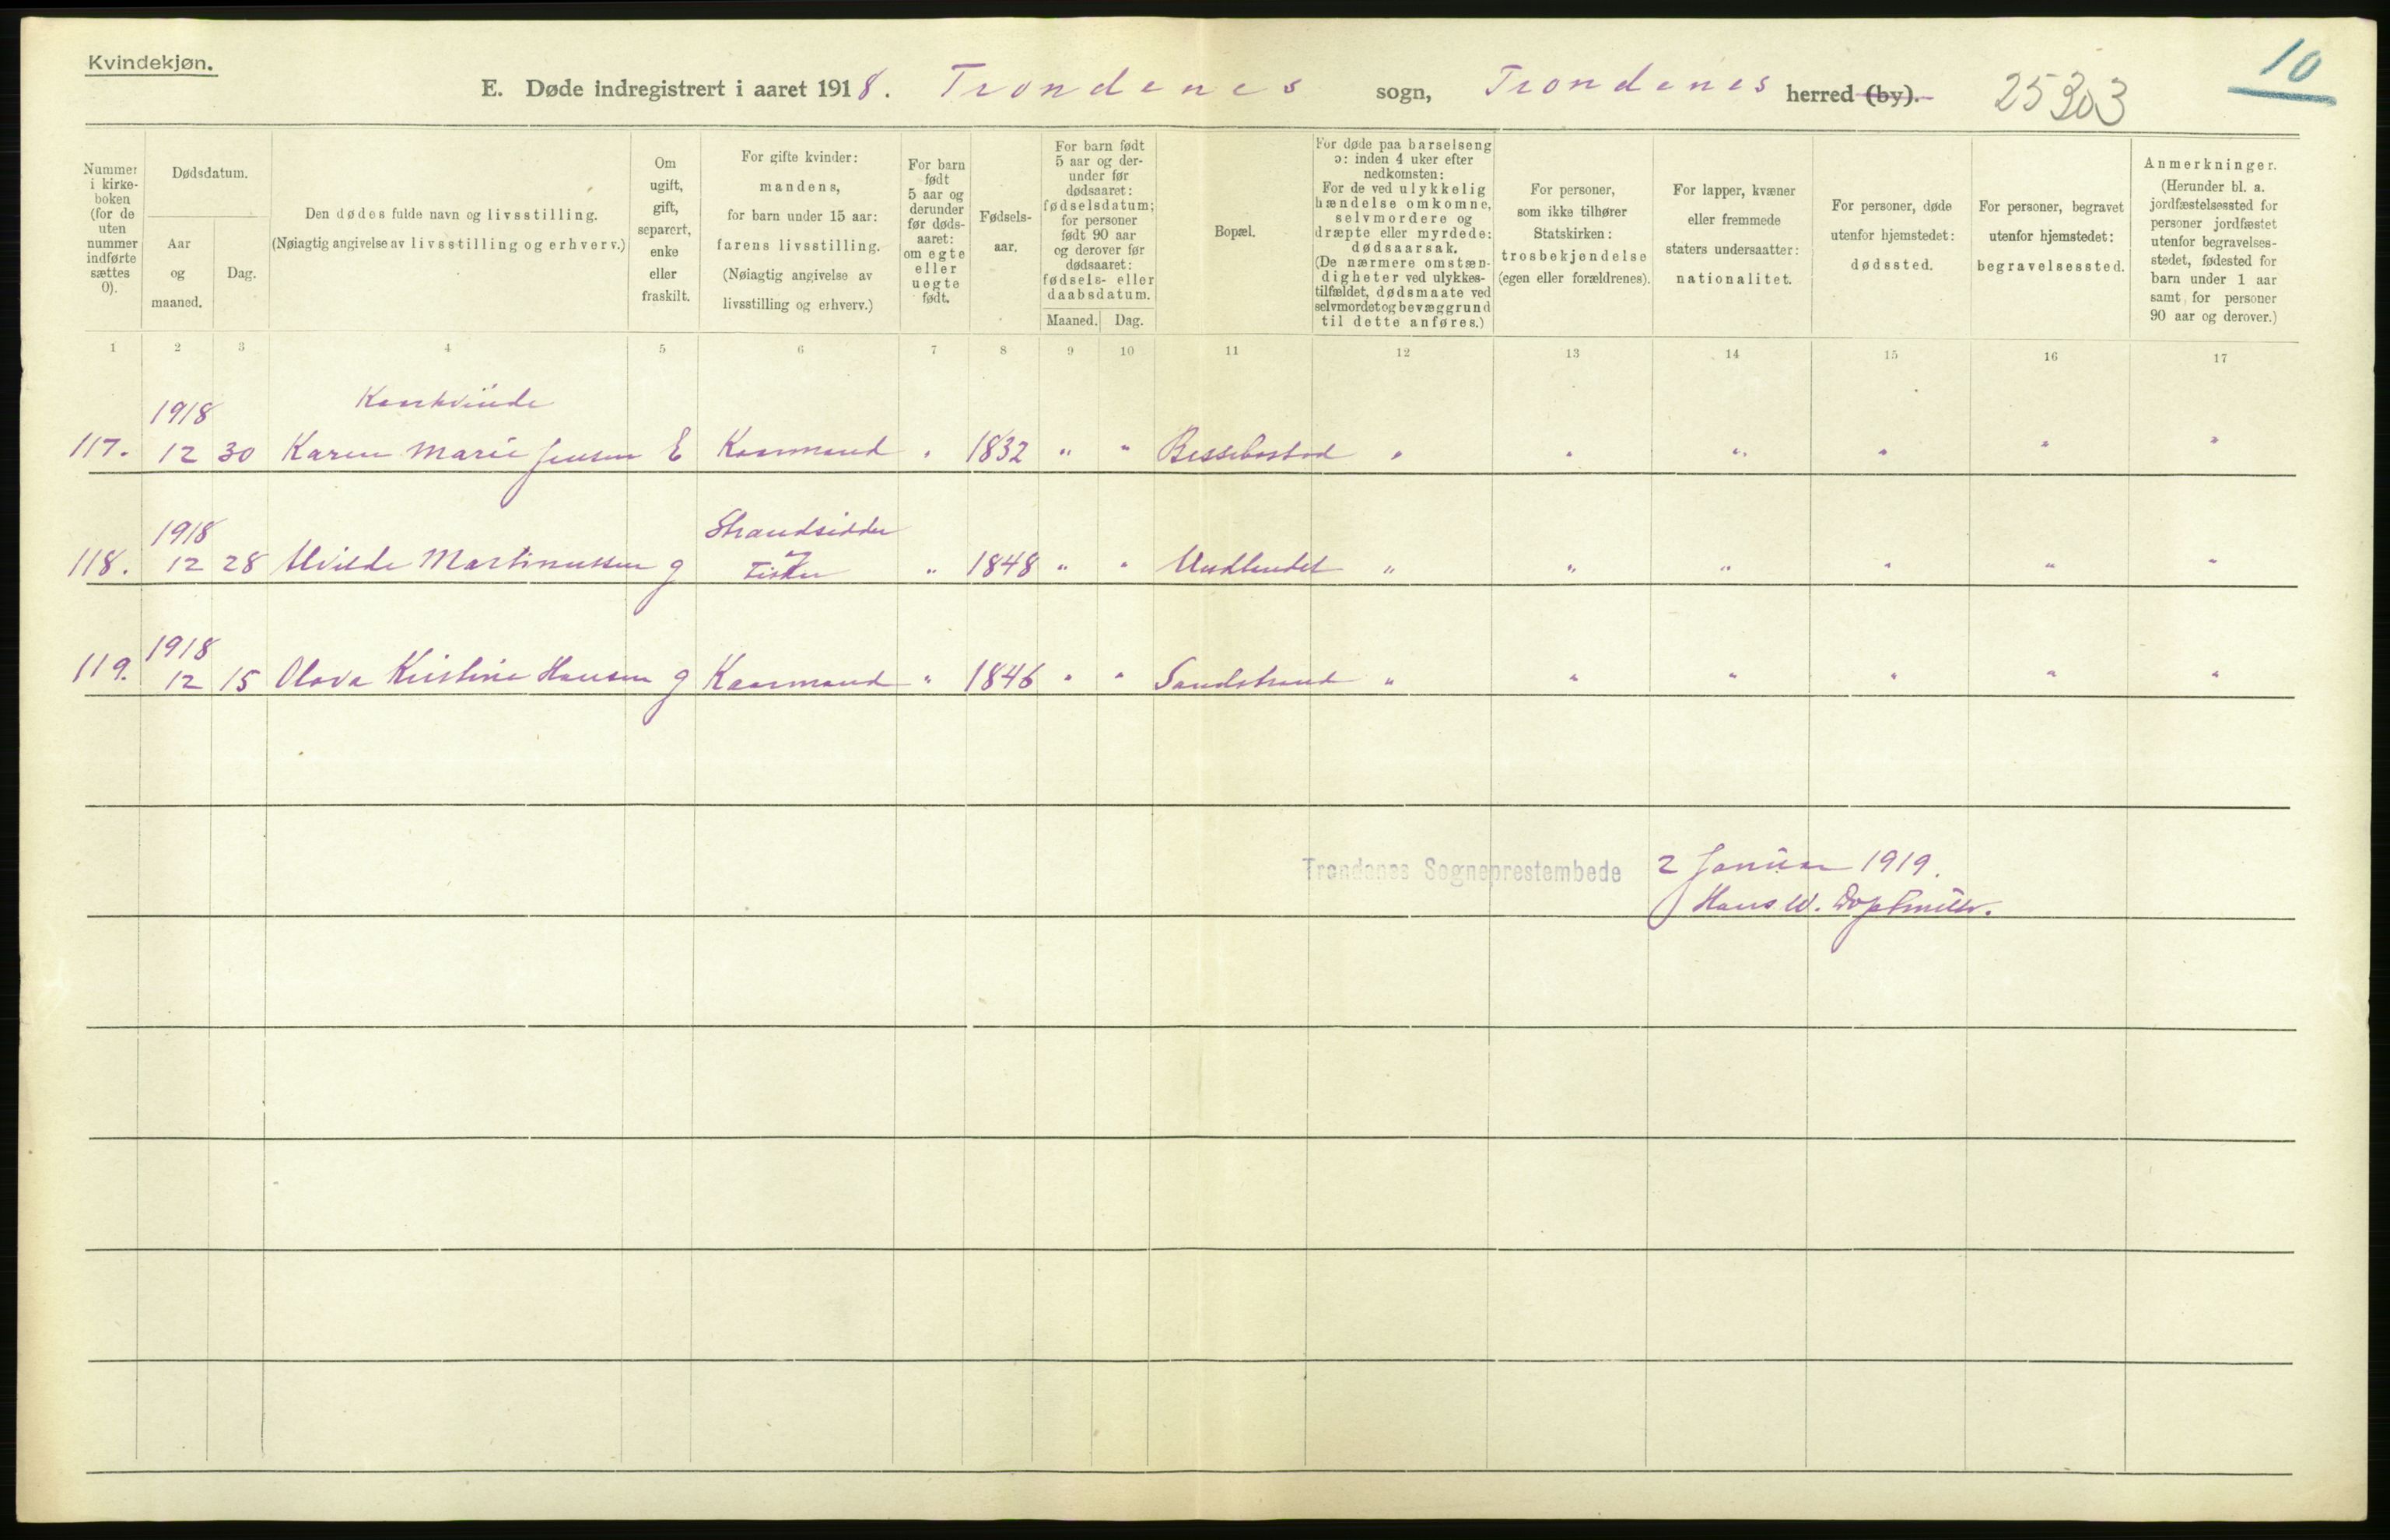 Kvindekjøn.
E. Døde indregistrert i aaret 1918. Trondenes sogn, Trondenes herred (by). 25303
10
Nummer i kirke-boken (for de uten nummer indførte sættes 0).
Dødsdatum.
Aar og maaned.
Dag.
Den dødes fulde navn og livsstilling.
(Nøiagtig angivelse av livsstilling og erhverv.)
Om ugift, gift, separert, enke eller fraskilt.
For gifte kvinder: mandens, for barn under 15 aar: farens livsstilling. (Nøiagtig angivelse av livsstilling og erhverv.)
For barn født 5 aar og derunder før døds-aaret: om egte eller uegte født.
Fødsels-aar.
For barn født 5 aar og der-under før dødsaaret: fødselsdatum; for personer født 90 aar og derover før dødsaaret: fødsels- eller daabsdatum.
Maaned. Dag.
Bopæl.
For døde paa barselseng ɔ: inden 4 uker efter nedkomsten: For de ved ulykkelig hændelse omkomne, selvmordere og dræpte eller myrdede: dødsaarsak. (De nærmere omstæn-digheter ved ulykkes-tilfældet, dødsmaate ved selvmordet og bevæggrund til dette anføres.)
For personer, som ikke tilhører Statskirken: trosbekjendelse (egen eller forældrenes).
For lapper, kvæner eller fremmede staters undersaatter: nationalitet.
For personer, døde utenfor hjemstedet: dødssted.
For personer, begravet utenfor hjemstedet: begravelsessted.
Anmerkninger. (Herunder bl. a. jordfæstelsessted for personer jordfæstet utenfor begravelses-stedet, fødested for barn under 1 aar samt for personer 90 aar og derover.)
1 2 3 4 5 6 7 8 9 10 11 12 13 14 15 16 17
1918 Kaarkvinde
117. 12 30 Karen Marie Jensen E Kaarmand " 1832 " " Bessebostad " " " " " "
1918 Strandsidder
118. 12 28 Martinussen g Fisker " 1848 " " " " " " " "
1918
119. 12 15 Olava Kristine Hansen g Kaarmand " 1846 " " Sandstrand " " " " " "
Trondenes Sogneprestembede 2 Januar 1919.
Hans W.